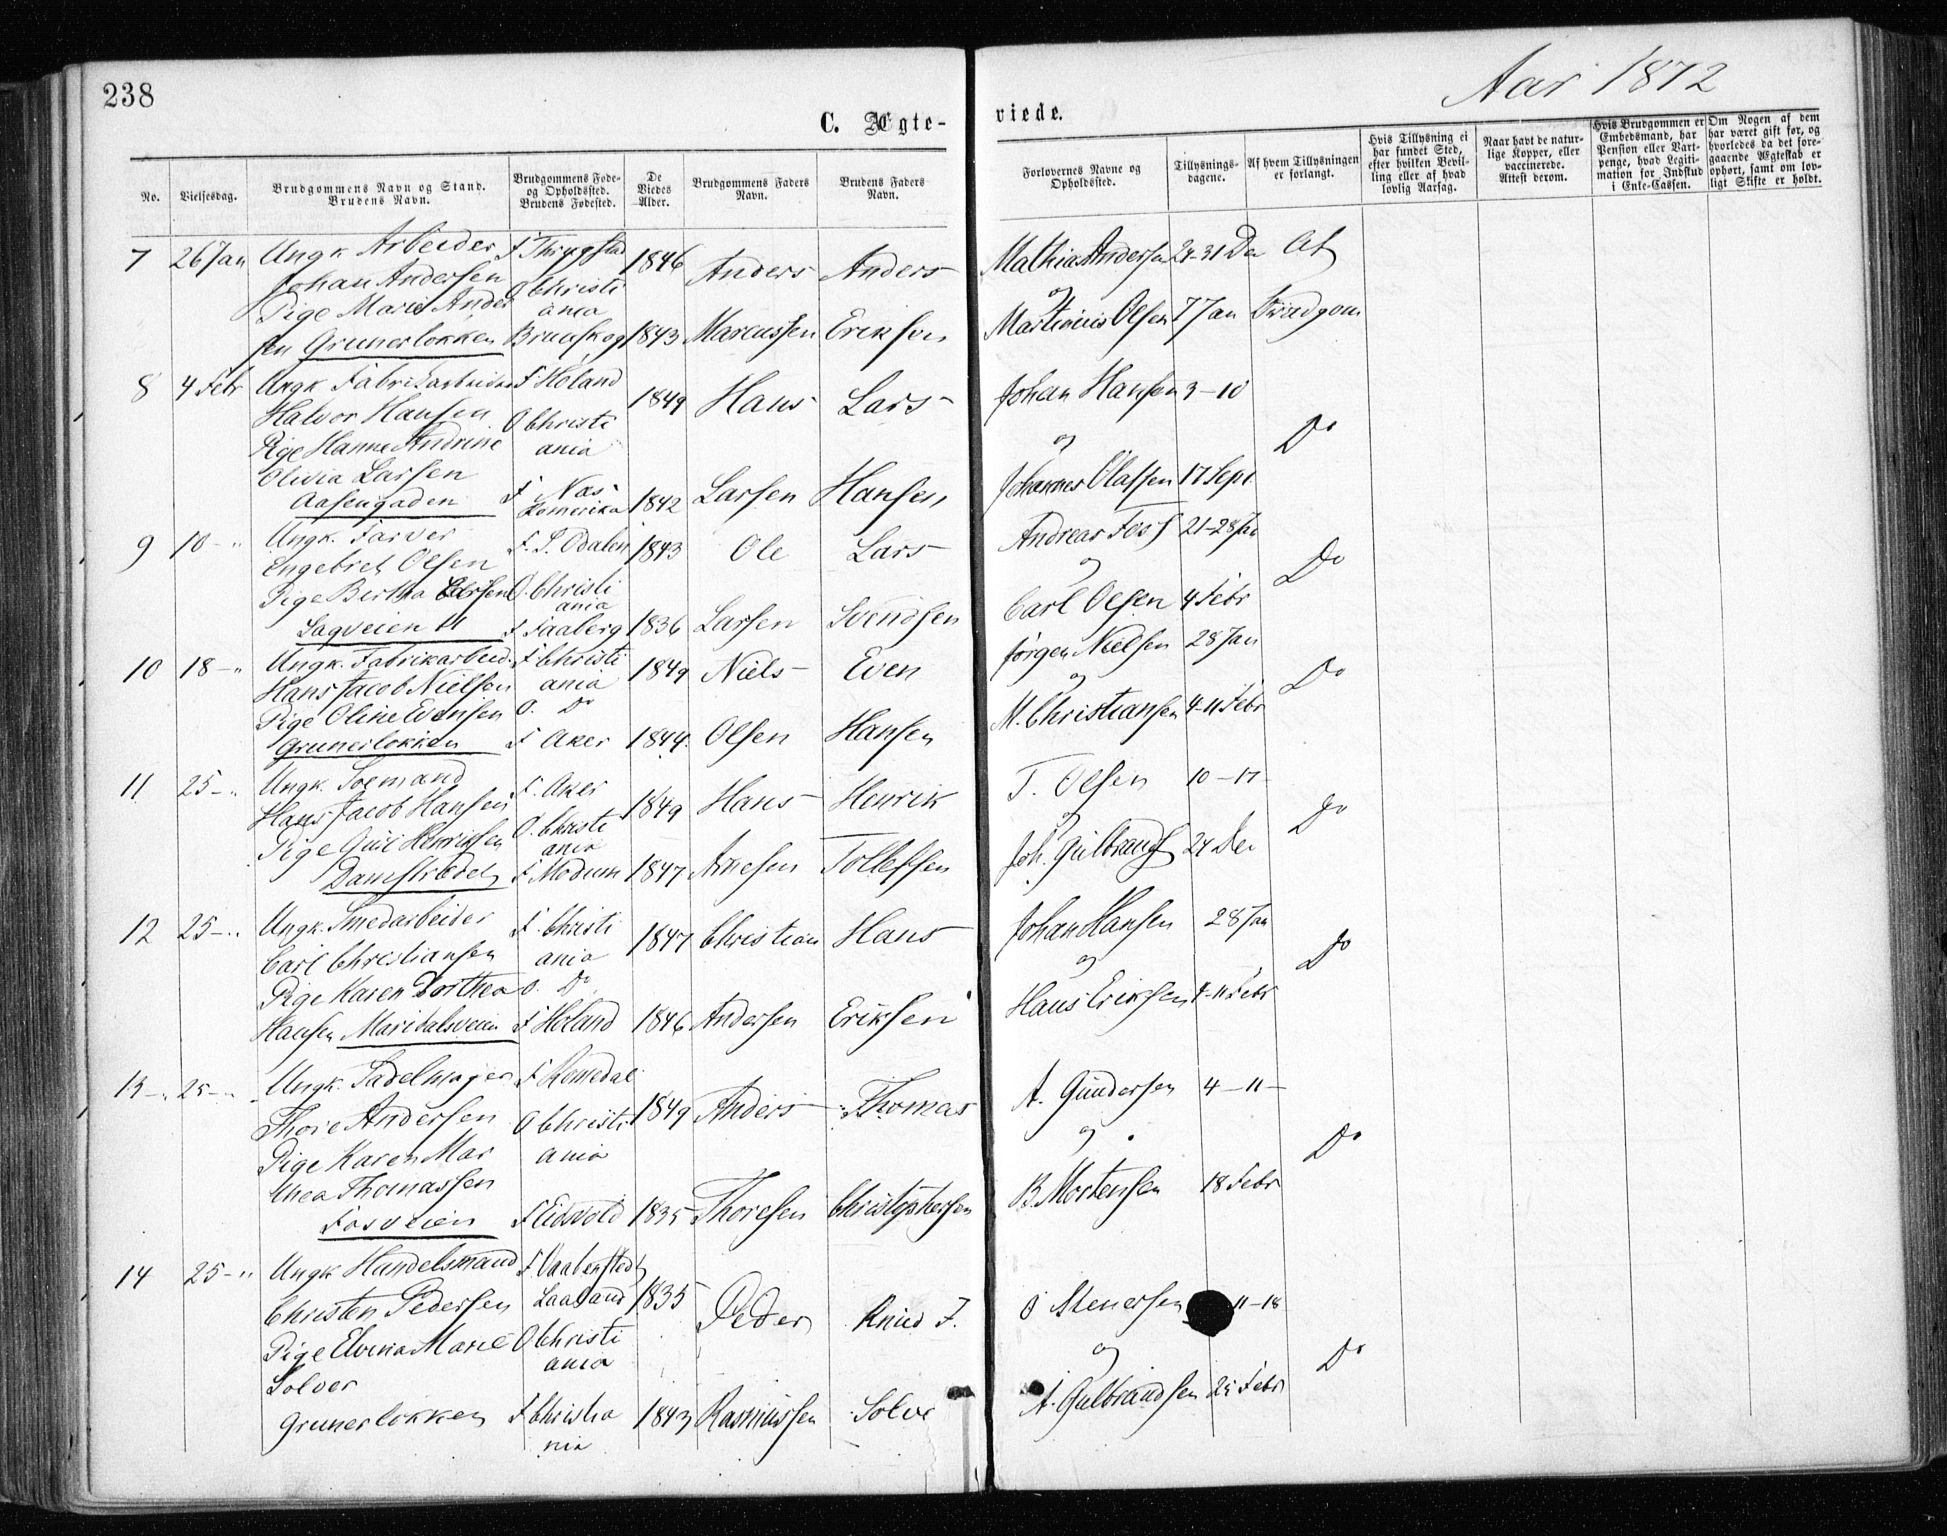 238
C. Ægte-
viede.
Aar 1872
No.
Vielsesdag.
Brudgommens Navn og Stand.
Brudens Navn.
Brudgommens Føde-
og Opholdssted.
Brudens Fødested.
De
Viedes
Alder.
Brudgommens Faders
Navn.
Brudens Faders
Navn.
Forlovernes Navne og
Opholdssted.
Tillysnings-
dagene.
Af hvem Tillysningen
er forlangt.
Hvis Tillysning ei
har fundet Sted,
efter hvilken Bevil-
ling eller af hvad
lovlig Aarsag.
Naar havt de natur-
lige Kopper, eller
vaccinerede.
Attest derom.
Hvis Brudgommen er
Embedsmand, har
Pension eller Vart-
penge, hvad Legiti-
mation for Indskud
i Enke-Cassen.
Om Nogen af dem
har været gift før, og
hvorledes da det fore-
gaaende Ægteskab er
ophørt, samt om lov-
ligt Skifte er holdt.
7 26 Jan Ungk Arbeider F Thrygstad 1846 Anders Anders Mathias Andersen 24-31 De Af
Johan Andersen O Christi
Pige Marie Ander ania og
sen Grunerløkken Brunskog 1843 Marcussen Eriksen Martinius Olsen 7 Jan Brudgom
8 4 Febr Ungk Fabrikarbeider F Høland 1849 Hans Lars Johan Hansen 3-10
Halvor Hansen O Christi
Pige Hanne Andrine ania og Do
Olivia Larsen
Aasengaden F Næs Romerike 1842 Larsen Hansen Johannes Olafsen 17 Sept
9 10 - " Ungk. Farver F. S. Odalen 1843 Ole Lars Andreas Foss 21-28 Ja
Engebret Olsen
Pige Bertha Larsen O. Christi ania og Do
Sagveien 11 F Faaberg 1836 Larsen Svendsen Carl Olsen 4 Febr
10 18 - " Ungk. Fabrikarbeid. F Christi 1849 Niels Even Jørgen Nielsen 28 Jan
Hans Jacob Nielsen ania
Pige Oline Evensen O. Do og Do
Grunerløkken F Aker 1844 Olsen Hansen M. Christiansen 4-11 Febr
11 25 - " Ungk. Sømand F. Aker 1849 Hans Henrik T. Olsen 10-17
Hans Jacob Hansen O. Christi
Pige Guil Henriksen ania og Do
Damstrædet F Modum 1847 Arnesen Tollefsen Joh. Gulbrands 24 De
12 25 - " Ungk. Smedarbeider F. Christi 1847 Christian Hans Johan Hansen 28 Jan
Carl Christiansen ania
Pige Karen Dorthea O. Do og Do
Hansen Maridalsveien F Høland 1846 Andersen Eriksen Hans Eriksen 4-11 Febr
13 - " 25 - " Ungk. Sadelmager F Romedal 1849 Anders Thomas A. Gundersen 4-11-
Thore Andersen O Christi
Pige Karen Mar ania og Do
thea Thomassen
Fosveien F Eidsvold 1835 Thoresen Christophersen B. Mortensen 18 Febr
14 25 - " Ungk Handelsmand F. Vaabensted 1835 Peder Knud F. O Stenersen 11-18
Christen Pedersen Laaland
Pige Elvina Marie O Christi ania og Do
Solver
Grunerløkken F Christia nia 1843 Rasmussen Solve A. Gulbrandsen 25 Febr